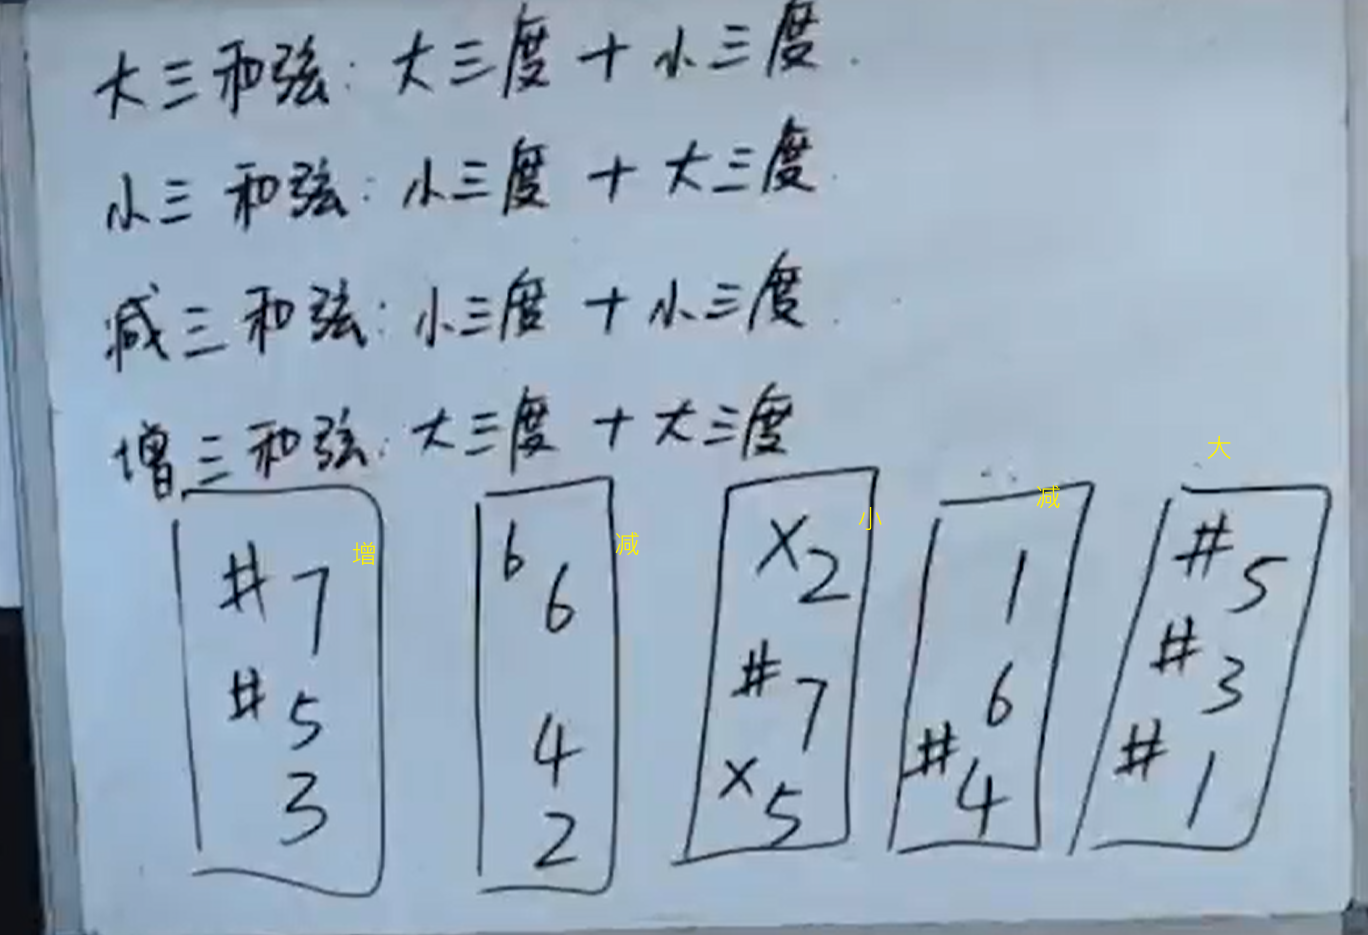 大三和弦: 大三度 + 小三度.
小三和弦: 小三度 + 大三度.
减三和弦: 小三度 + 小三度.
增三和弦: 大三度 + 大三度
#7
#5
3
增
b6
4
2
减
x2
#7
x5
小
1
6
#4
减
#5
#3
#1
大